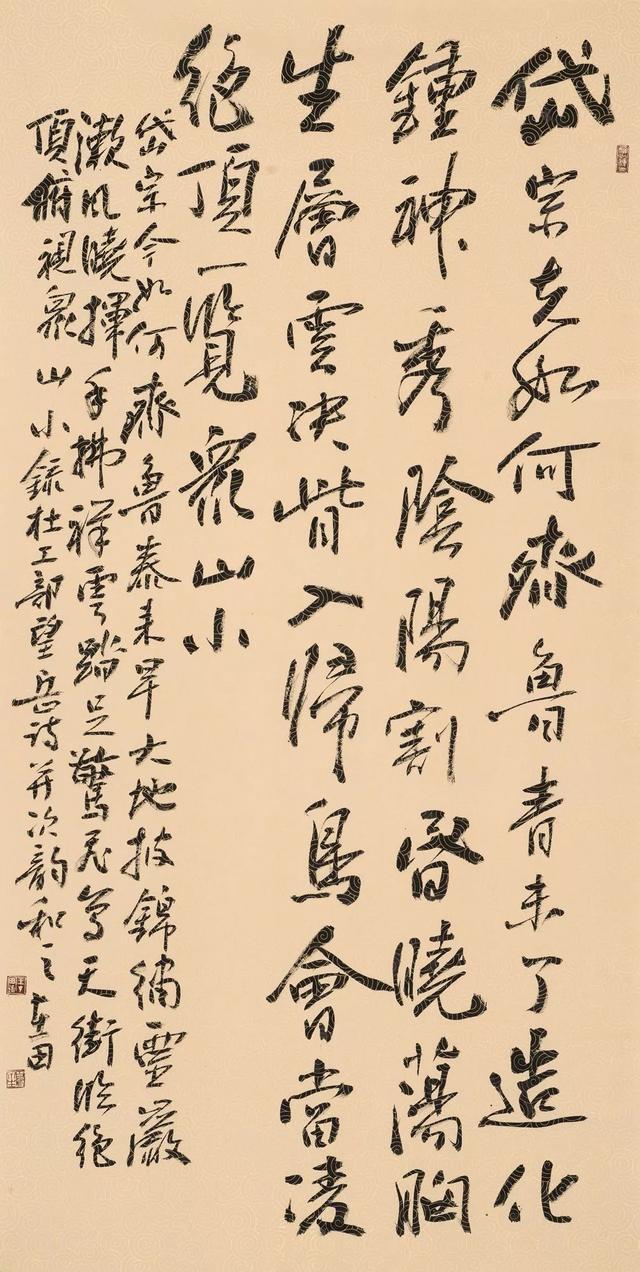 岱宗夫如何齊魯青未了造化
鍾神秀陰陽割昏曉蕩胸
生層雲決眥入歸鳥會當凌
絕頂一覽眾山小
岱宗今如何齊魯泰來早大地披錦繡靈巖
漱風曉揮手拂祥雲踏足驚飛鳥天衢臨絕
頂俯視眾山小錄杜工部望岳詩并次韵和之